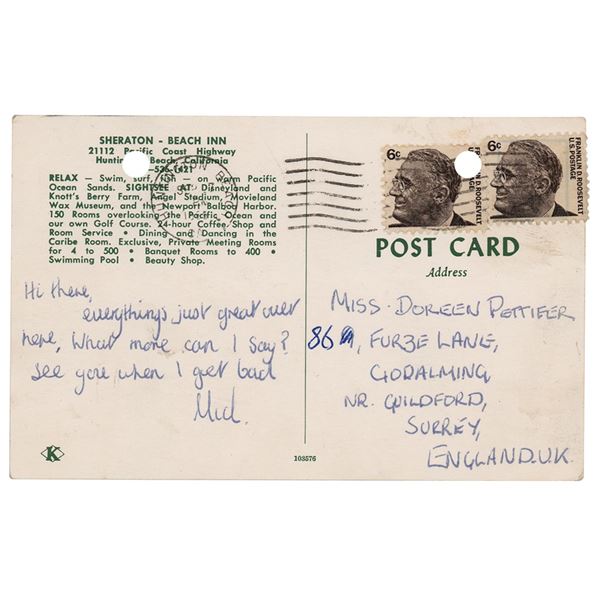 SHERATON - BEACH INN
21112 Pacific Coast Highway
Huntington Beach, California
536-1421
RELAX — Swim, surf, fish — on warm Pacific
Ocean Sands. SIGHTSEE AT Disneyland and
Knott's Berry Farm, Angel Stadium, Movieland
Wax Museum, and the Newport Balboa Harbor.
150 Rooms overlooking the Pacific Ocean and
our own Golf Course. 24-hour Coffee Shop and
Room Service • Dining and Dancing in the
Caribe Room. Exclusive, Private Meeting Rooms
for 4 to 500 • Banquet Rooms to 400 •
Swimming Pool • Beauty Shop.
6c
FRANKLIN D. ROOSEVELT
U.S. POSTAGE
6c
FRANKLIN D. ROOSEVELT
U.S. POSTAGE
POST CARD
Address
Hi there,
everythings just great over
here, What more can I say?
See you when I get back
Mid.
MISS. DOREEN PETTIFER
86, FURZE LANE,
GODALMING,
NR. GUILDFORD,
SURREY,
ENGLAND.U.K.
K
103576